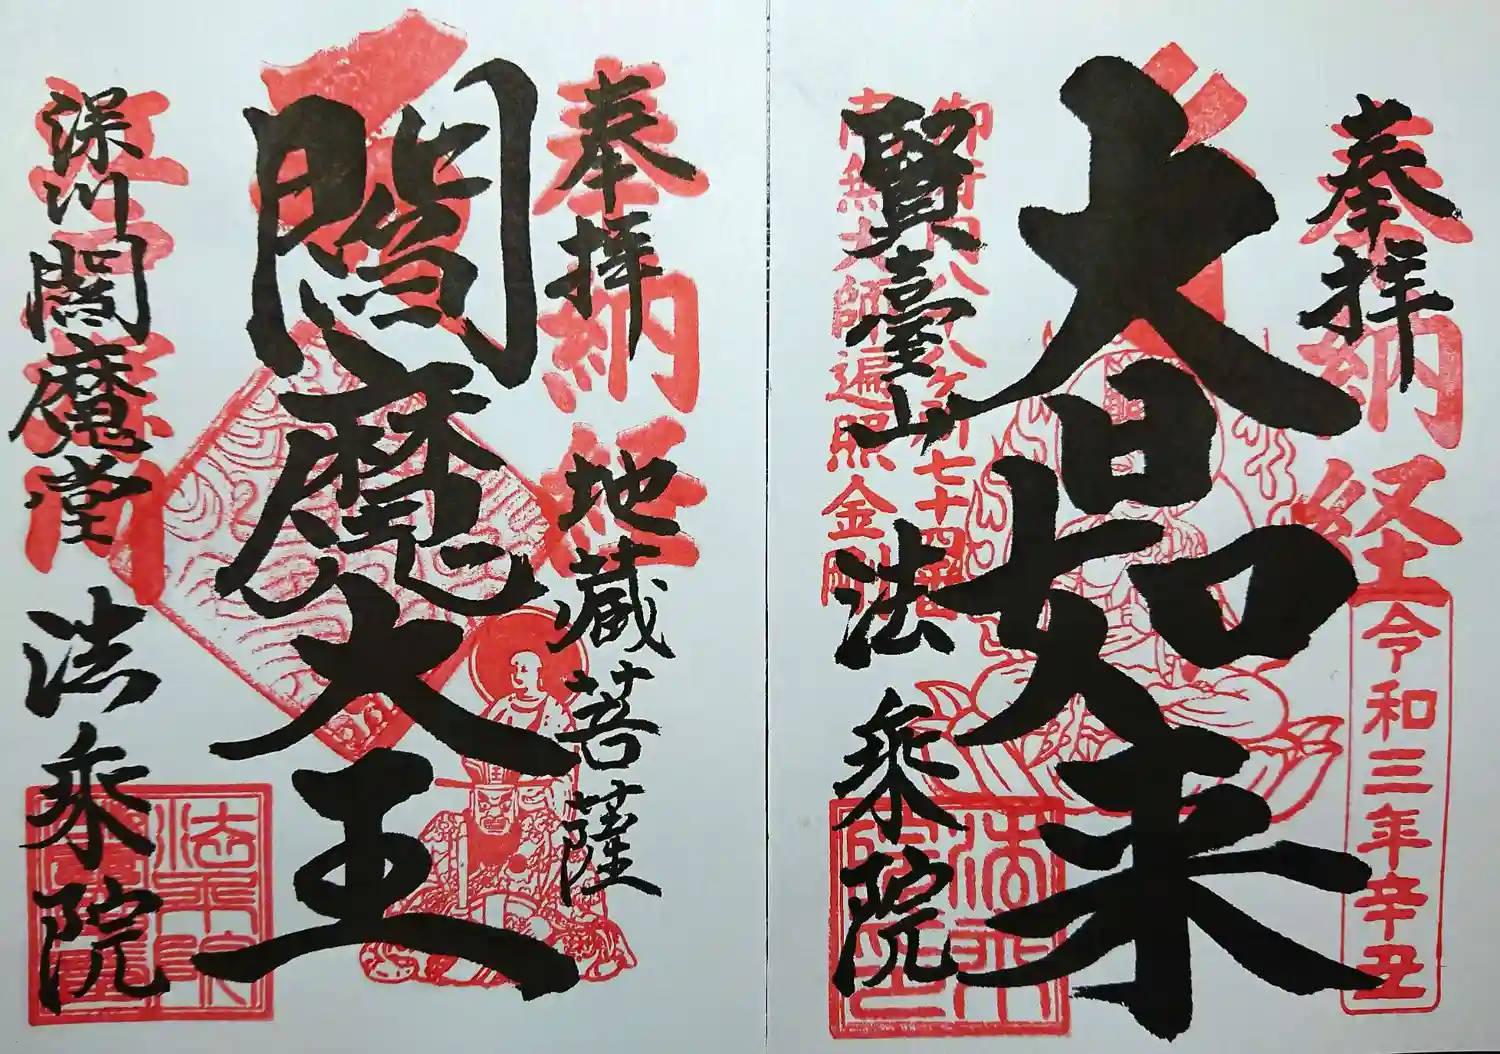 奉拝
奉納経
令和三年辛丑
大日如来
御府内八十八ヶ所七十四番
南無大師遍照金剛
賢臺山
法乗院
奉拝
奉納経
地蔵菩薩
閻魔大王
深川閻魔堂
法乗院
法乗院